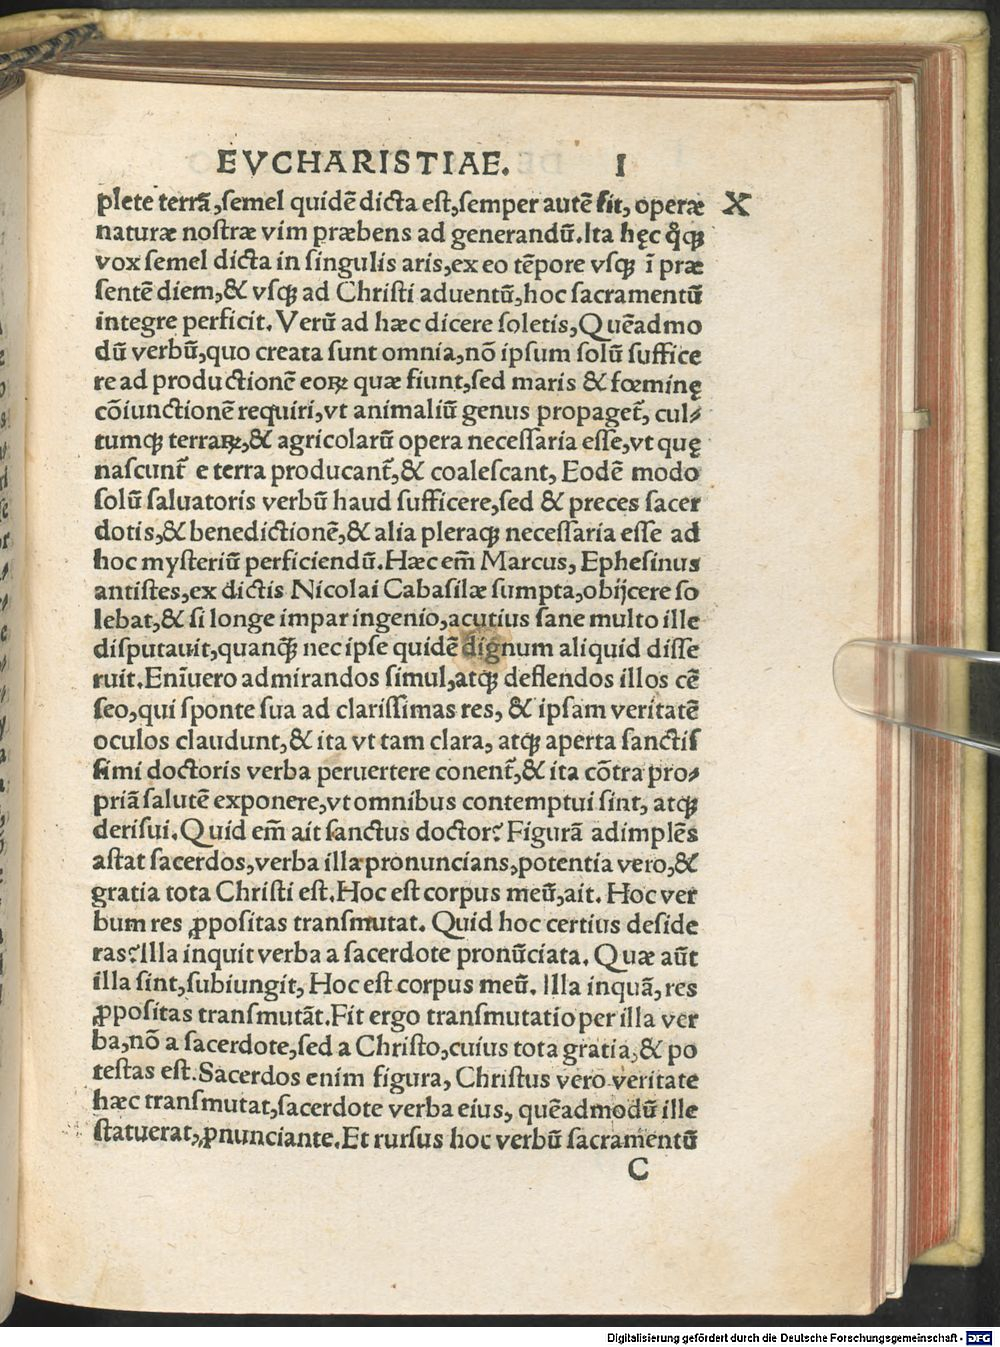 EVCHARISTIAE. I
plete terrã, semel quidẽ dicta est, semper autẽ fit, operæ X
naturæ nostræ vim præbens ad generandũ. Ita hęc q̊q;
vox semel dicta in singulis aris, ex eo tẽpore vsq; ĩ præ
sentẽ diem, & vsq; ad Christi aduentũ, hoc sacramentũ
integre perficit. Verũ ad hæc dicere soletis, Quẽadmo
dũ verbũ, quo creata sunt omnia, nõ ipsum solũ suffice
re ad productionẽ eoꝝ quæ fiunt, sed maris & fœminę
cõiunctionẽ requiri, vt animaliũ genus propaget̃, cul⸗
tumq; terraꝝ, & agricolarũ opera necessaria esse, vt quę
nascunt̃ e terra producant̃, & coalescant, Eodẽ modo
solũ saluatoris verbũ haud sufficere, sed & preces sacer
dotis, & benedictionẽ, & alia pleraq; necessaria esse ad
hoc mysteriũ perficiendũ. Hæc em̃ Marcus, Ephesinus
antistes, ex dictis Nicolai Cabasilæ sumpta, obijcere so
lebat, & si longe impar ingenio, acutius sane multo ille
disputauit, quanq̃ nec ipse quidẽ dignum aliquid disse
ruit. Enĩuero admirandos simul, atq; deflendos illos cẽ
seo, qui sponte sua ad clarissimas res, & ipsam veritatẽ
oculos claudunt, & ita vt tam clara, atq; aperta sanctis
simi doctoris verba peruertere conent̃, & ita cõtra pro⸗
priã salutẽ exponere, vt omnibus contemptui sint, atq;
derisui. Quid em̃ ait sanctus doctor? Figurã adimplẽs
astat sacerdos, verba illa pronuncians, potentia vero, &
gratia tota Christi est. Hoc est corpus meũ, ait. Hoc ver
bum res ꝓpositas transmutat. Quid hoc certius deside
ras? Illa inquit verba a sacerdote pronũciata. Quæ aũt
illa sint, subiungit, Hoc est corpus meũ. Illa inquã, res
ꝓpositas transmutãt. Fit ergo transmutatio per illa ver
ba, nõ a sacerdote, sed a Christo, cuius tota gratia, & po
testas est. Sacerdos enim figura, Christus vero veritate
hæc transmutat, sacerdote verba eius, quẽadmodũ ille
statuerat, ꝓnunciante. Et rursus hoc verbũ sacramentũ
C
Digitalisierung gefördert durch die Deutsche Forschungsgemeinschaft - DFG